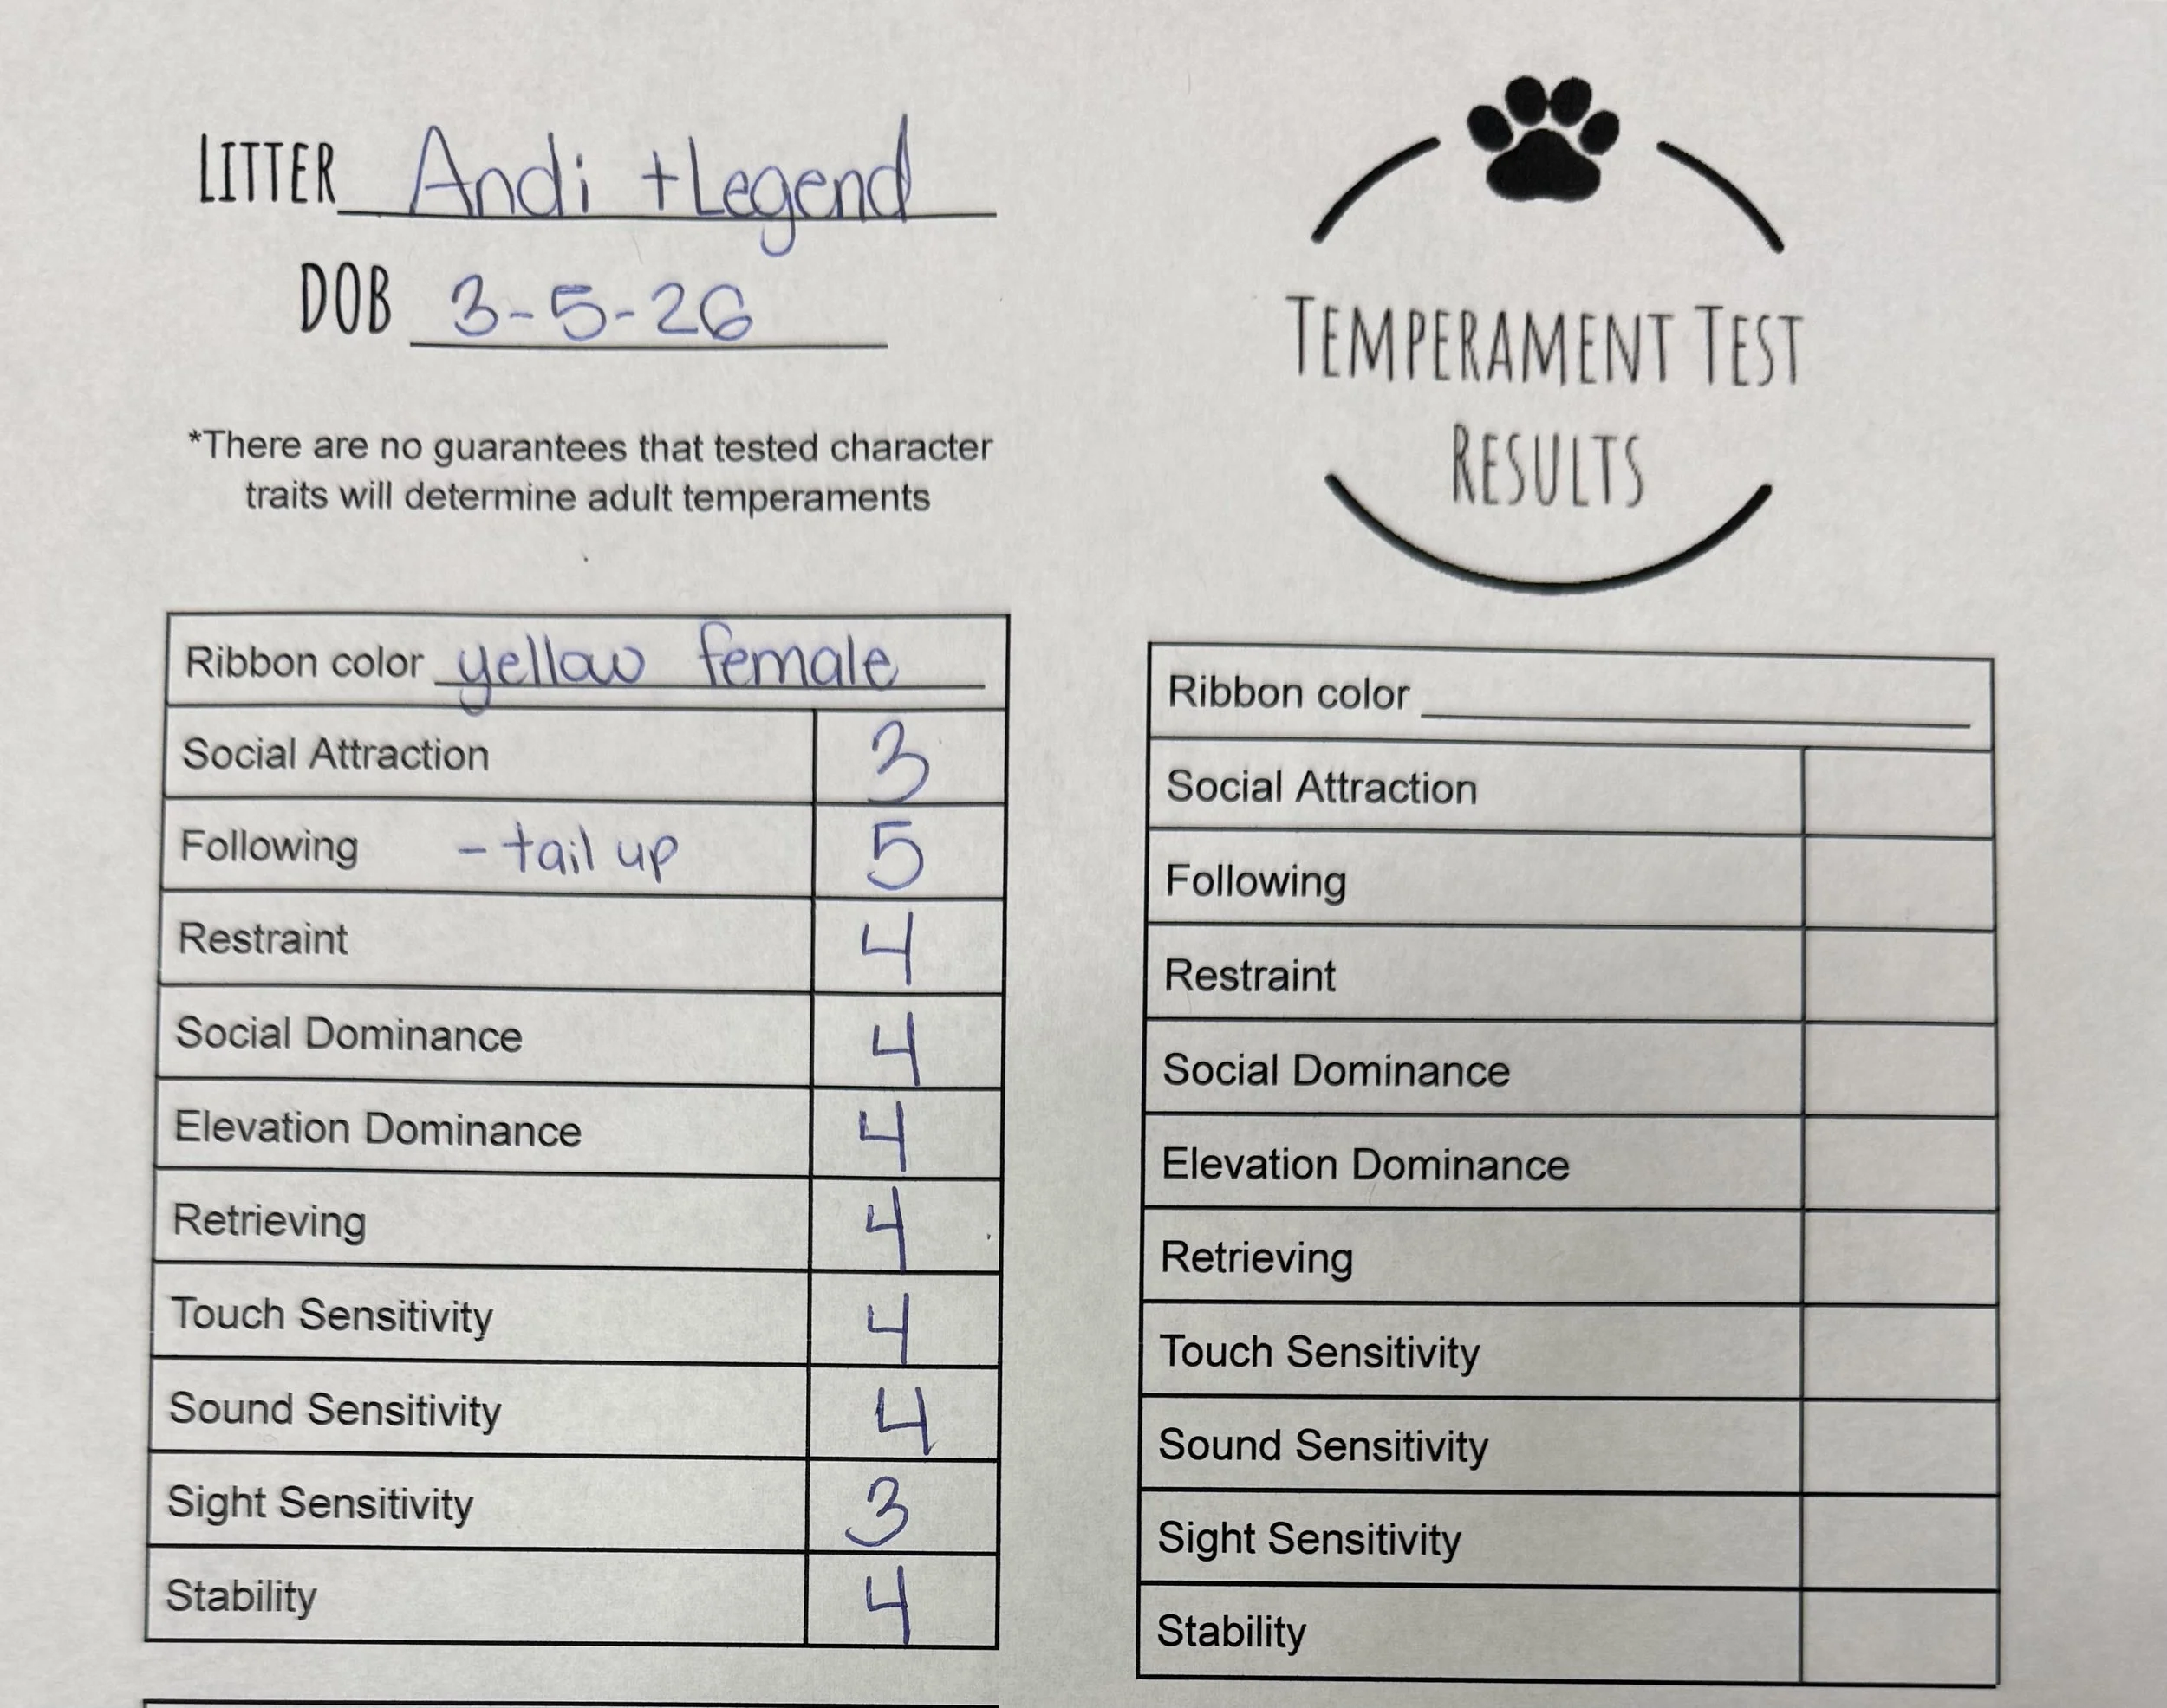 LITTER Andi + Legend
DOB 3-5-26
*There are no guarantees that tested character
traits will determine adult temperaments
TEMPERAMENT TEST
RESULTS
Ribbon color yellow female
Social Attraction 3
Following - tail up 5
Restraint 4
Social Dominance 4
Elevation Dominance 4
Retrieving 4
Touch Sensitivity 4
Sound Sensitivity 4
Sight Sensitivity 3
Stability 4
Ribbon color
Social Attraction
Following
Restraint
Social Dominance
Elevation Dominance
Retrieving
Touch Sensitivity
Sound Sensitivity
Sight Sensitivity
Stability